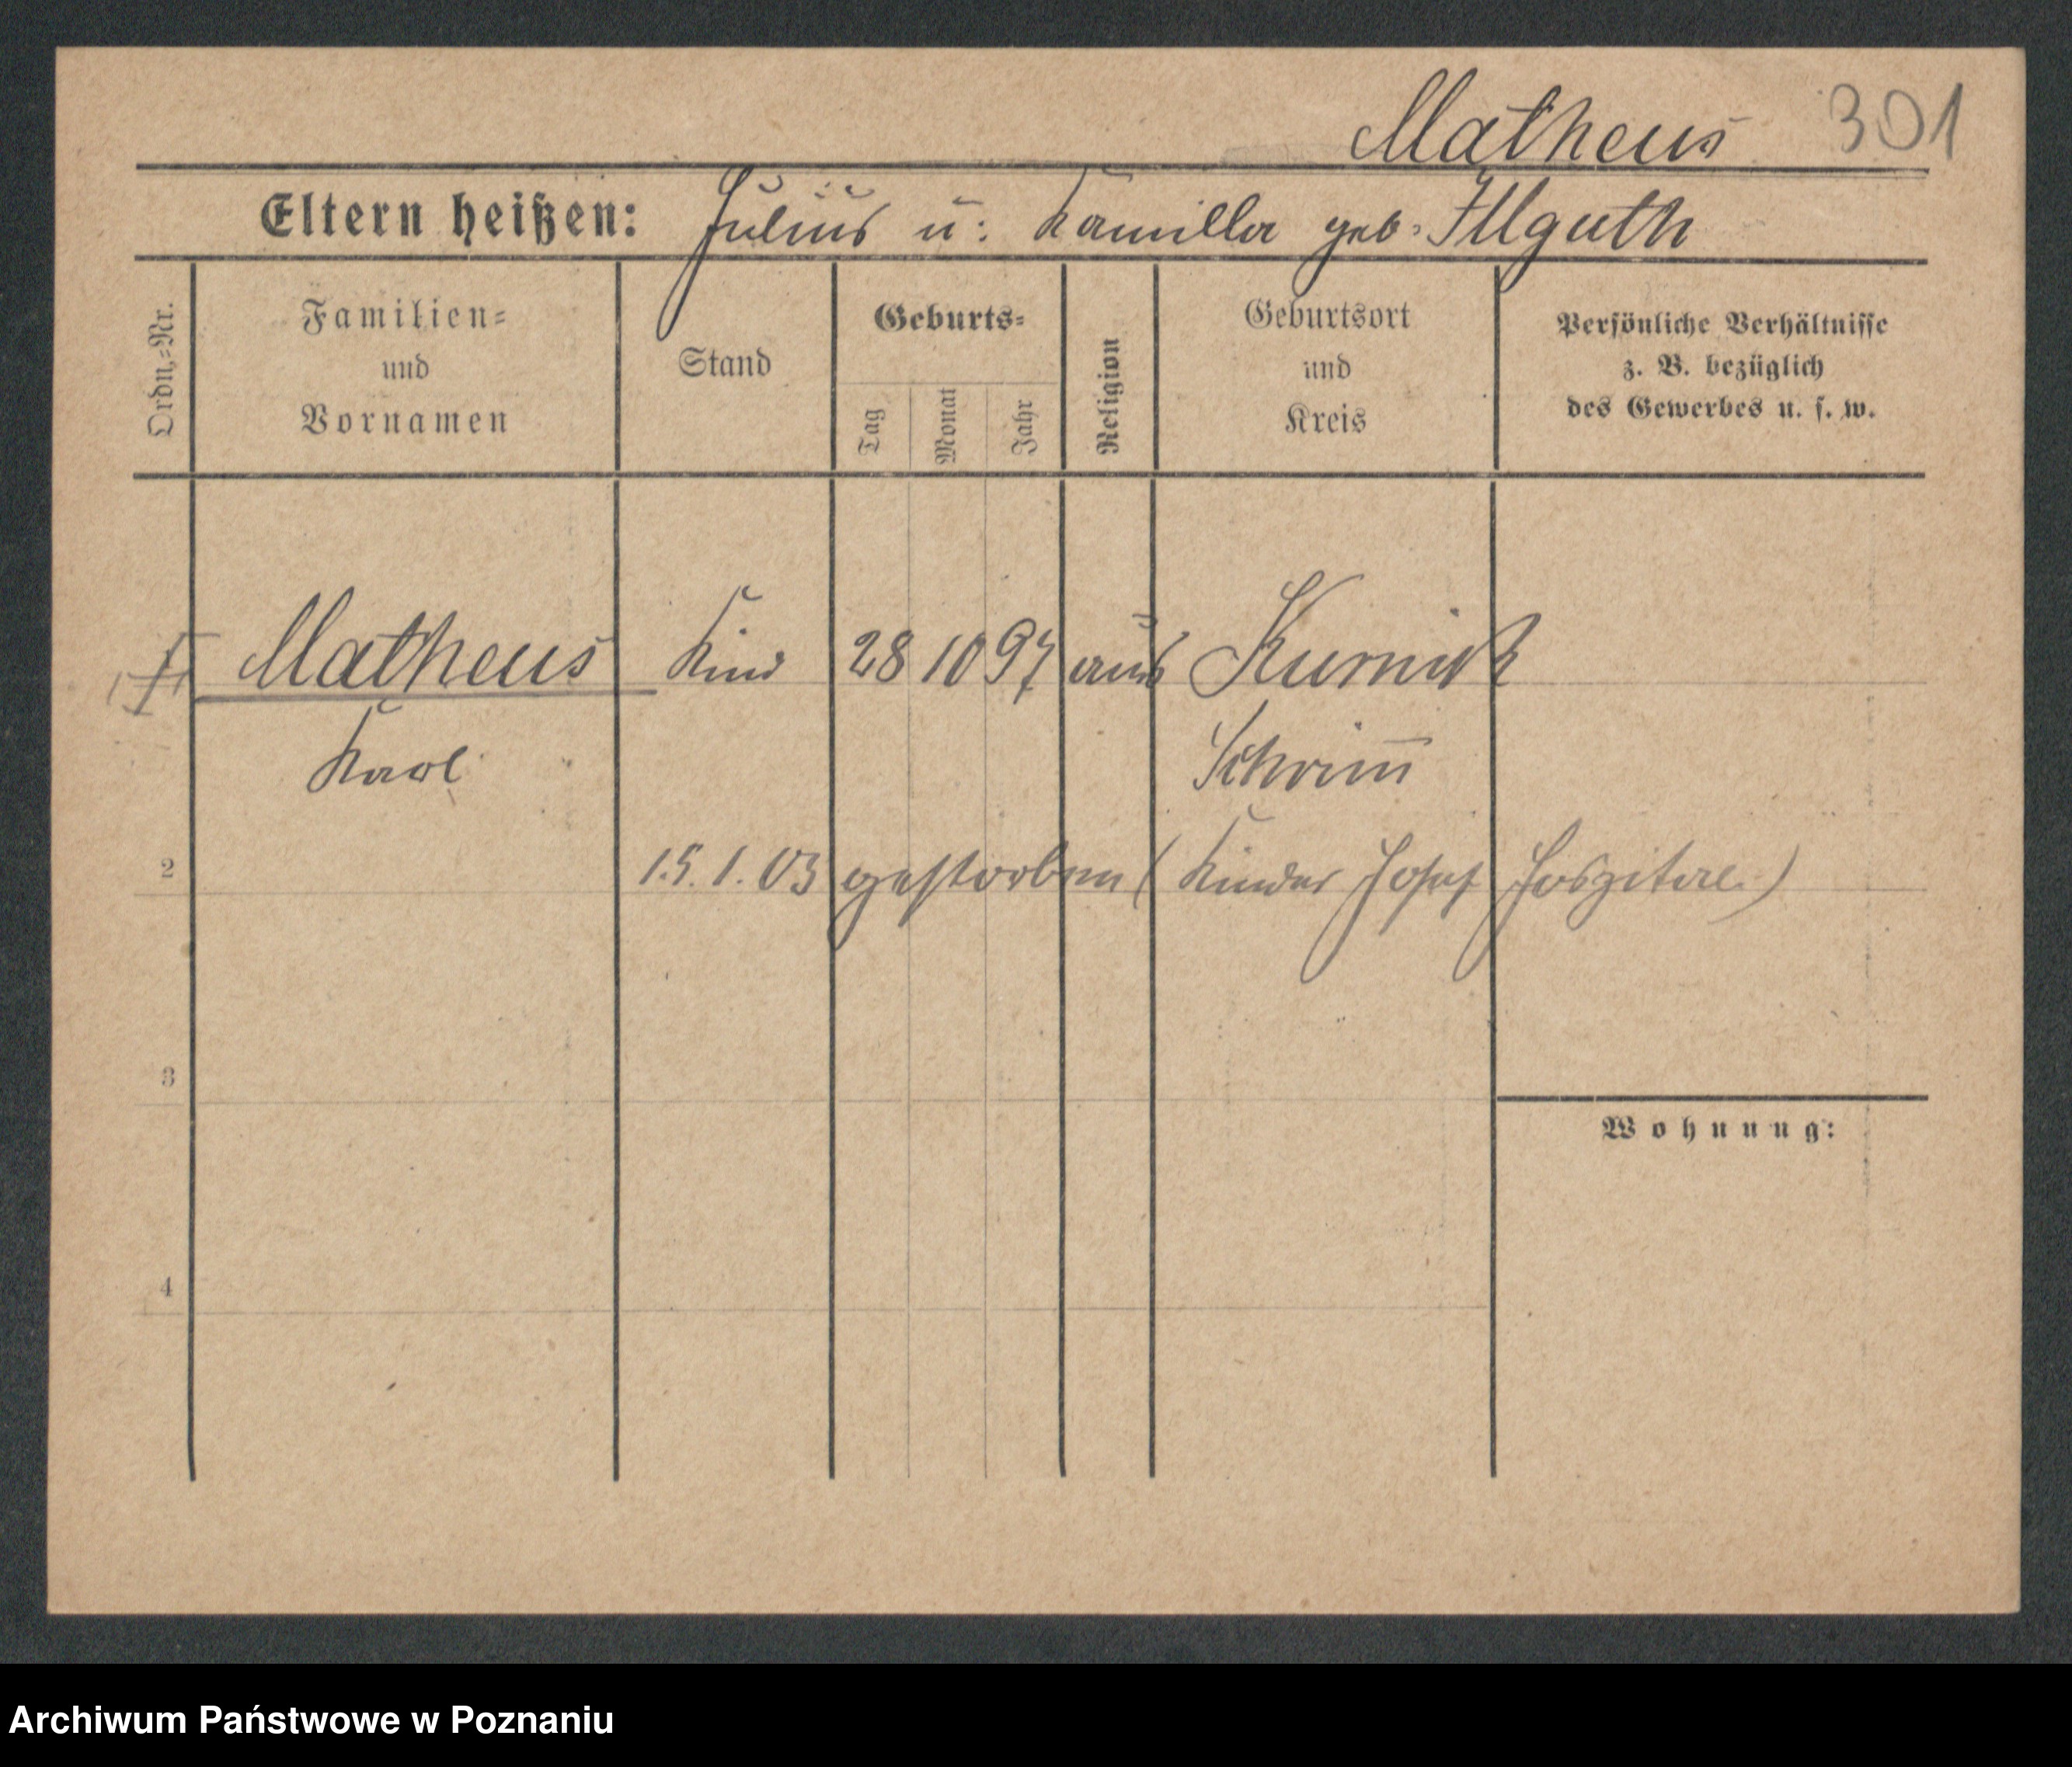 Matheus 301
Eltern heißen: Julius u: Kamilla geb. Illguth
Ordn.=Nr.
Familien=
und
Vornamen
Stand
Geburts=
Tag
Monat
Jahr
Religion
Geburtsort
und
Kreis
Persönliche Verhältnisse
z. B. bezüglich
des Gewerbes u. s. w.
Matheus Kind 28 10 97 Kurnik
Karl Schrim̄
2 15.1.03 gestorben (Kinder Josef Hoszital.)
3
Wohnung:
4
Archiwum Państwowe w Poznaniu